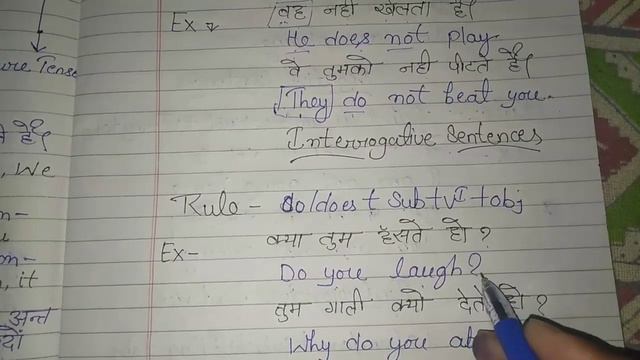 वह नही खेलता है।
Ex
He does not play
वे तुमको नही पीटते है।
They do not beat you.
Interrogative Sentences
Rule - do/does + Sub + vI + obj
Ex- क्या तुम हँसते हो ?
Do you laugh?
तुम गाली क्यो देते हो ?
Why do you
ure Tense
ते है।
, We
n-
u
on-
, it
अन्त